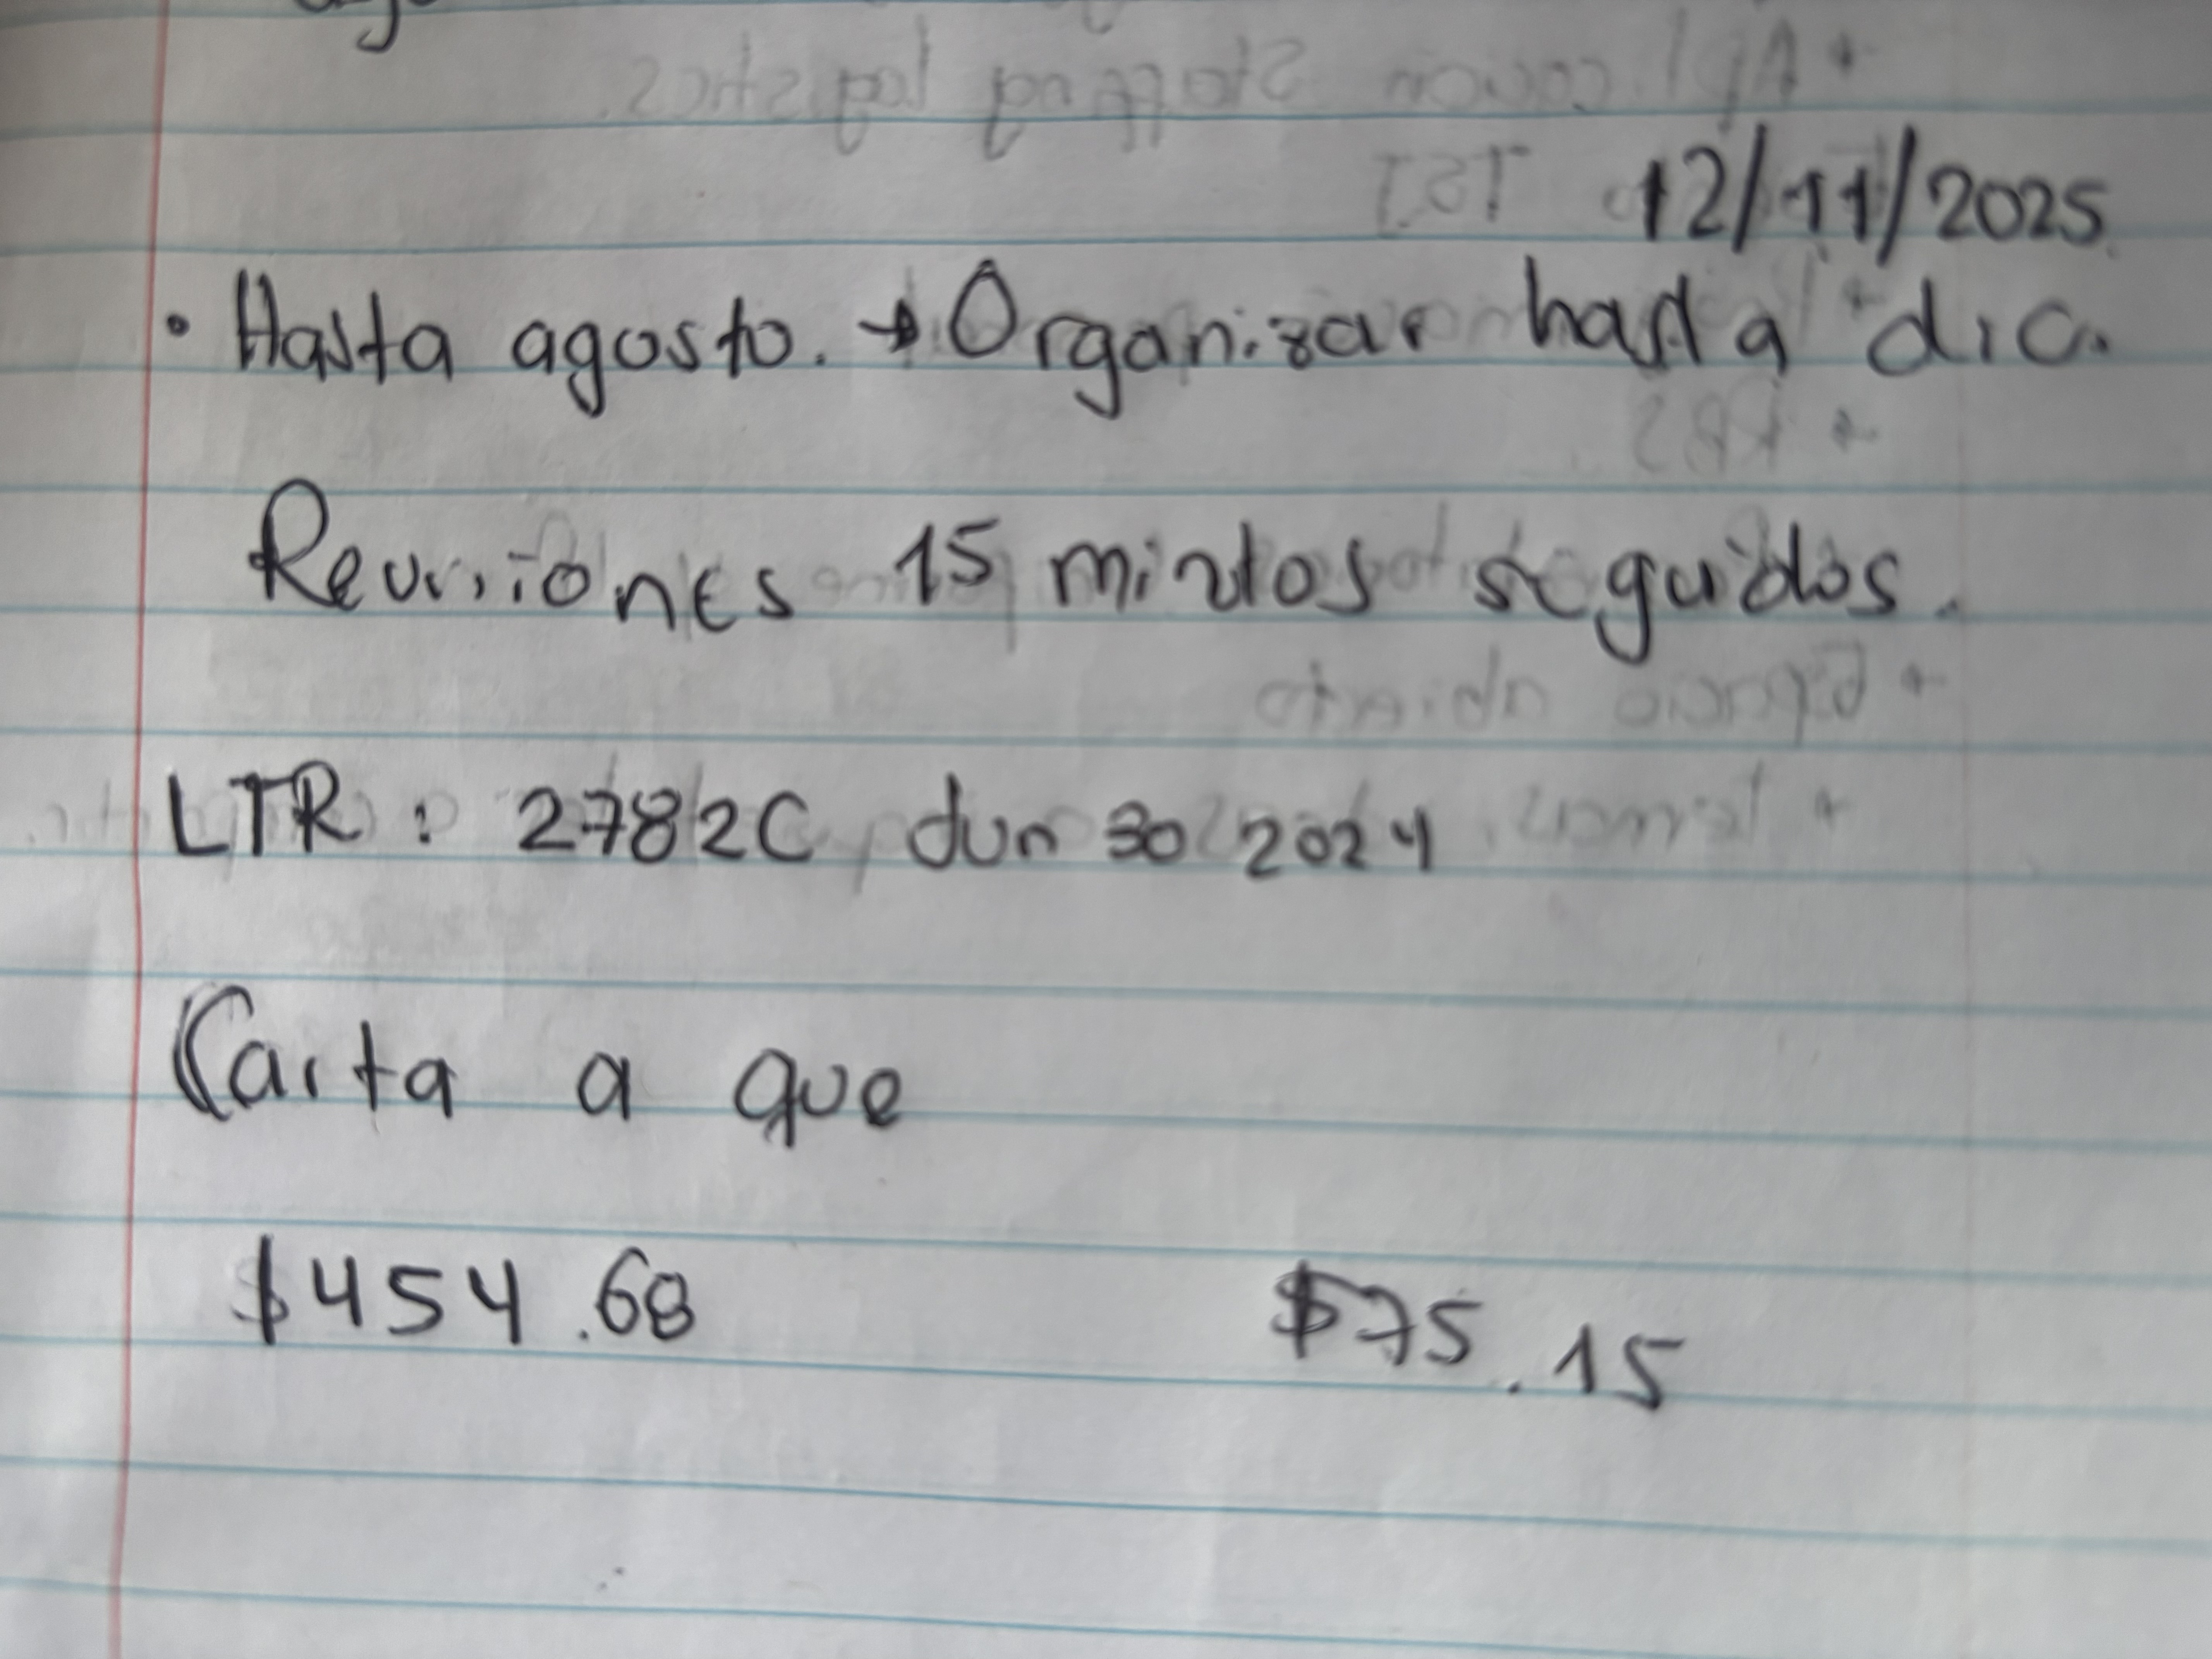 12/11/2025
• Hasta agosto. → Organizar hasta dic.
Reuniones 15 mintos seguidos.
LTR : 2782C, Jun 30 2024
Carta a que
$454.68 $75.15